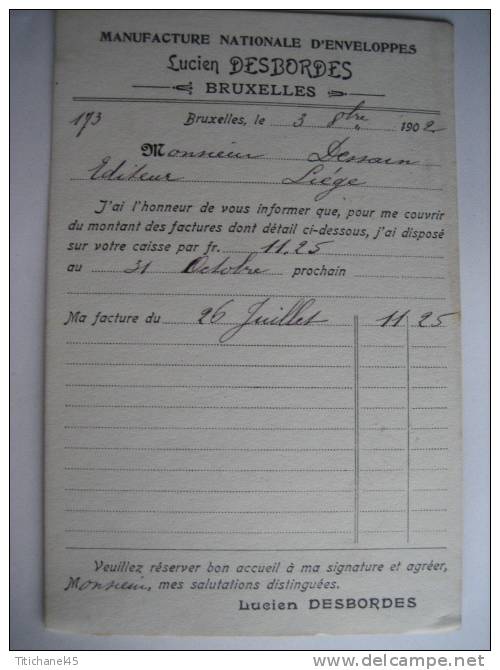 MANUFACTURE NATIONALE D'ENVELOPPES
Lucien DESBORDES
BRUXELLES
173 Bruxelles, le 3 8bre 1902
Monsieur Dessain
Editeur Liége
J'ai l'honneur de vous informer que, pour me couvrir
du montant des factures dont détail ci-dessous, j'ai disposé
sur votre caisse par fr. 11.25
au 31 Octobre prochain
Ma facture du 26 Juillet 11 25
Veuillez réserver bon accueil à ma signature et agréer,
Monsieur, mes salutations distinguées.
Lucien DESBORDES
Titichane45
http://www.delcampe.net